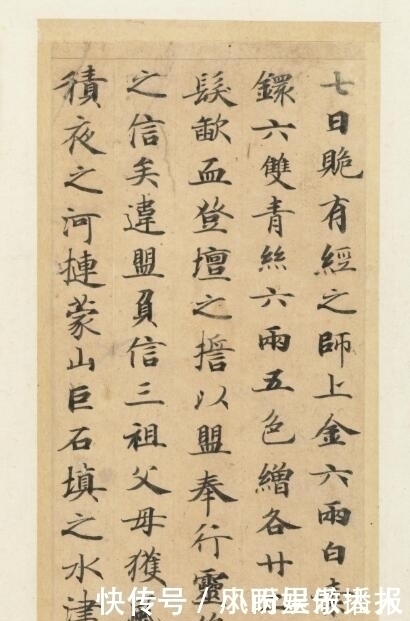 七日䞈有經之師上金六兩白
鐶六雙青絲六兩五色繒各廿
髮歃血登壇之誓以盟奉行靈
之信矣違盟負信三祖父母獲風
積夜之河摙蒙山巨石填之水津
快传号/播报